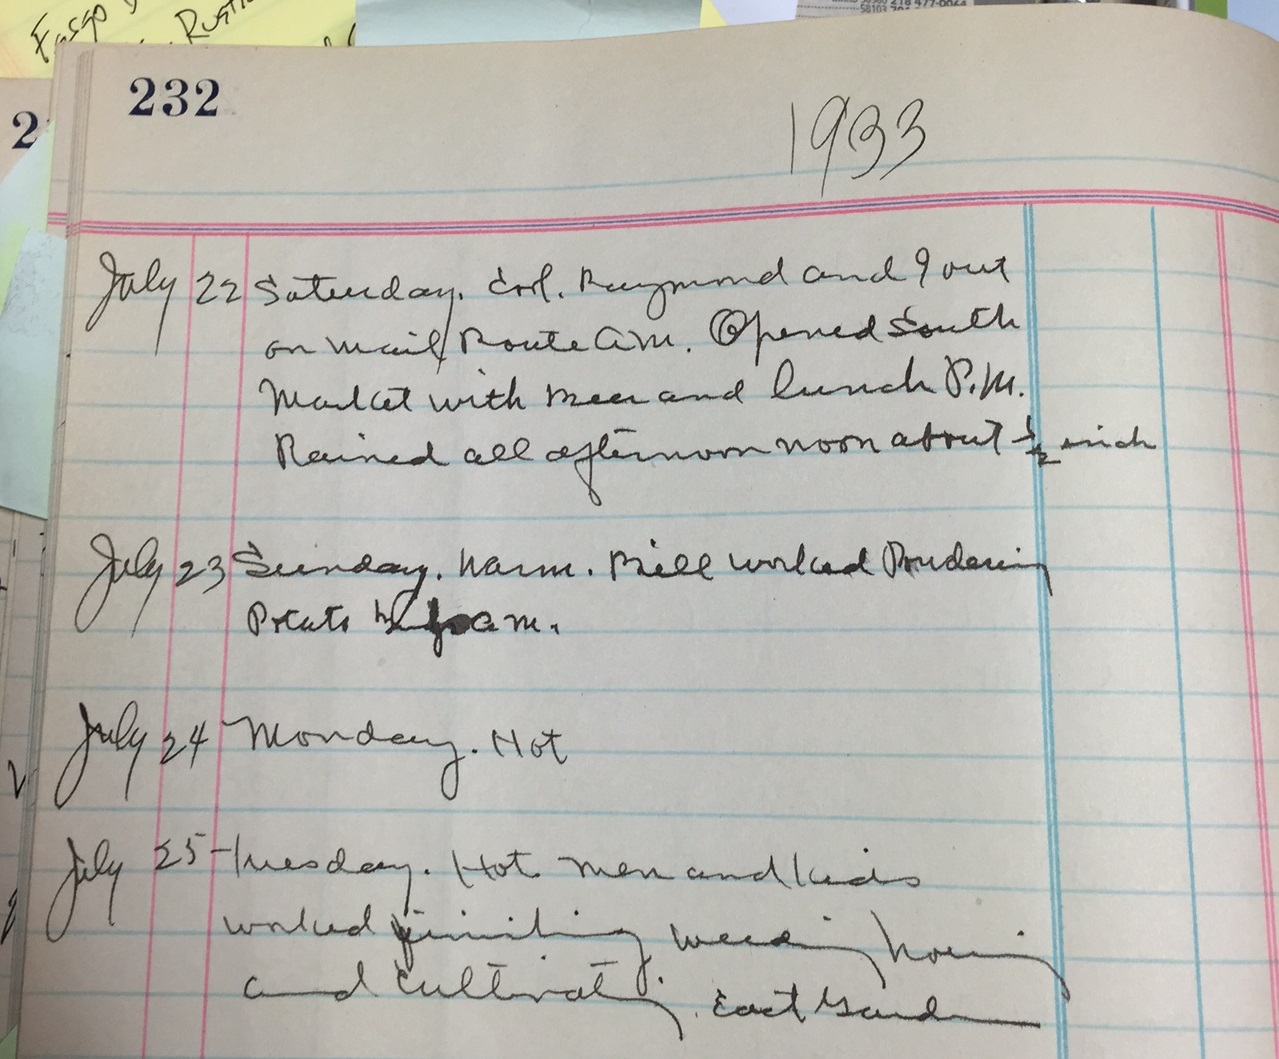 Fargo
Rustic
58103 701
218 477-0064
232
1933
July 22 Saturday. Cool. Raymond and I out
on mail Route A.M. Opened South
Market with Beer and lunch P.M.
Rained all afternoon noon about 1/2 inch
July 23 Sunday. Warm. Bill worked Powdering
Potato Bugs a m.
July 24 Monday. Hot
July 25 Tuesday. Hot men and kids
worked finishing weeding hoeing
and cultivating. East Garden